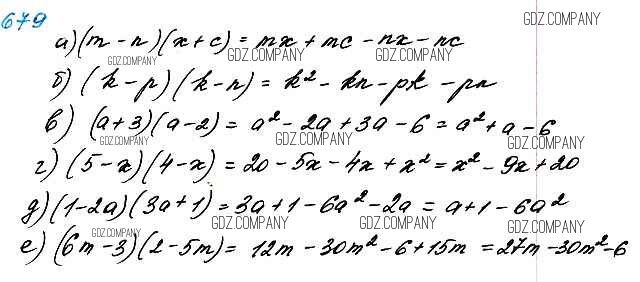 679
а) (m - n)(x + c) = mx + mc - nx - nc
б) (k - p)(k - n) = k² - kn - pk - pn
в) (a + 3)(a - 2) = a² - 2a + 3a - 6 = a² + a - 6
г) (5 - x)(4 - x) = 20 - 5x - 4x + x² = x² - 9x + 20
д) (1 - 2a)(3a + 1) = 3a + 1 - 6a² - 2a = a + 1 - 6a²
е) (6m - 3)(2 - 5m) = 12m - 30m² - 6 + 15m = 27m - 30m² - 6
GDZ.COMPANY
GDZ.COMPANY
GDZ.COMPANY
GDZ.COMPANY
GDZ.COMPANY
GDZ.COMPANY
GDZ.COMPANY
GDZ.COMPANY
GDZ.COMPANY
GDZ.COMPANY
GDZ.COMPANY
GDZ.COMPANY